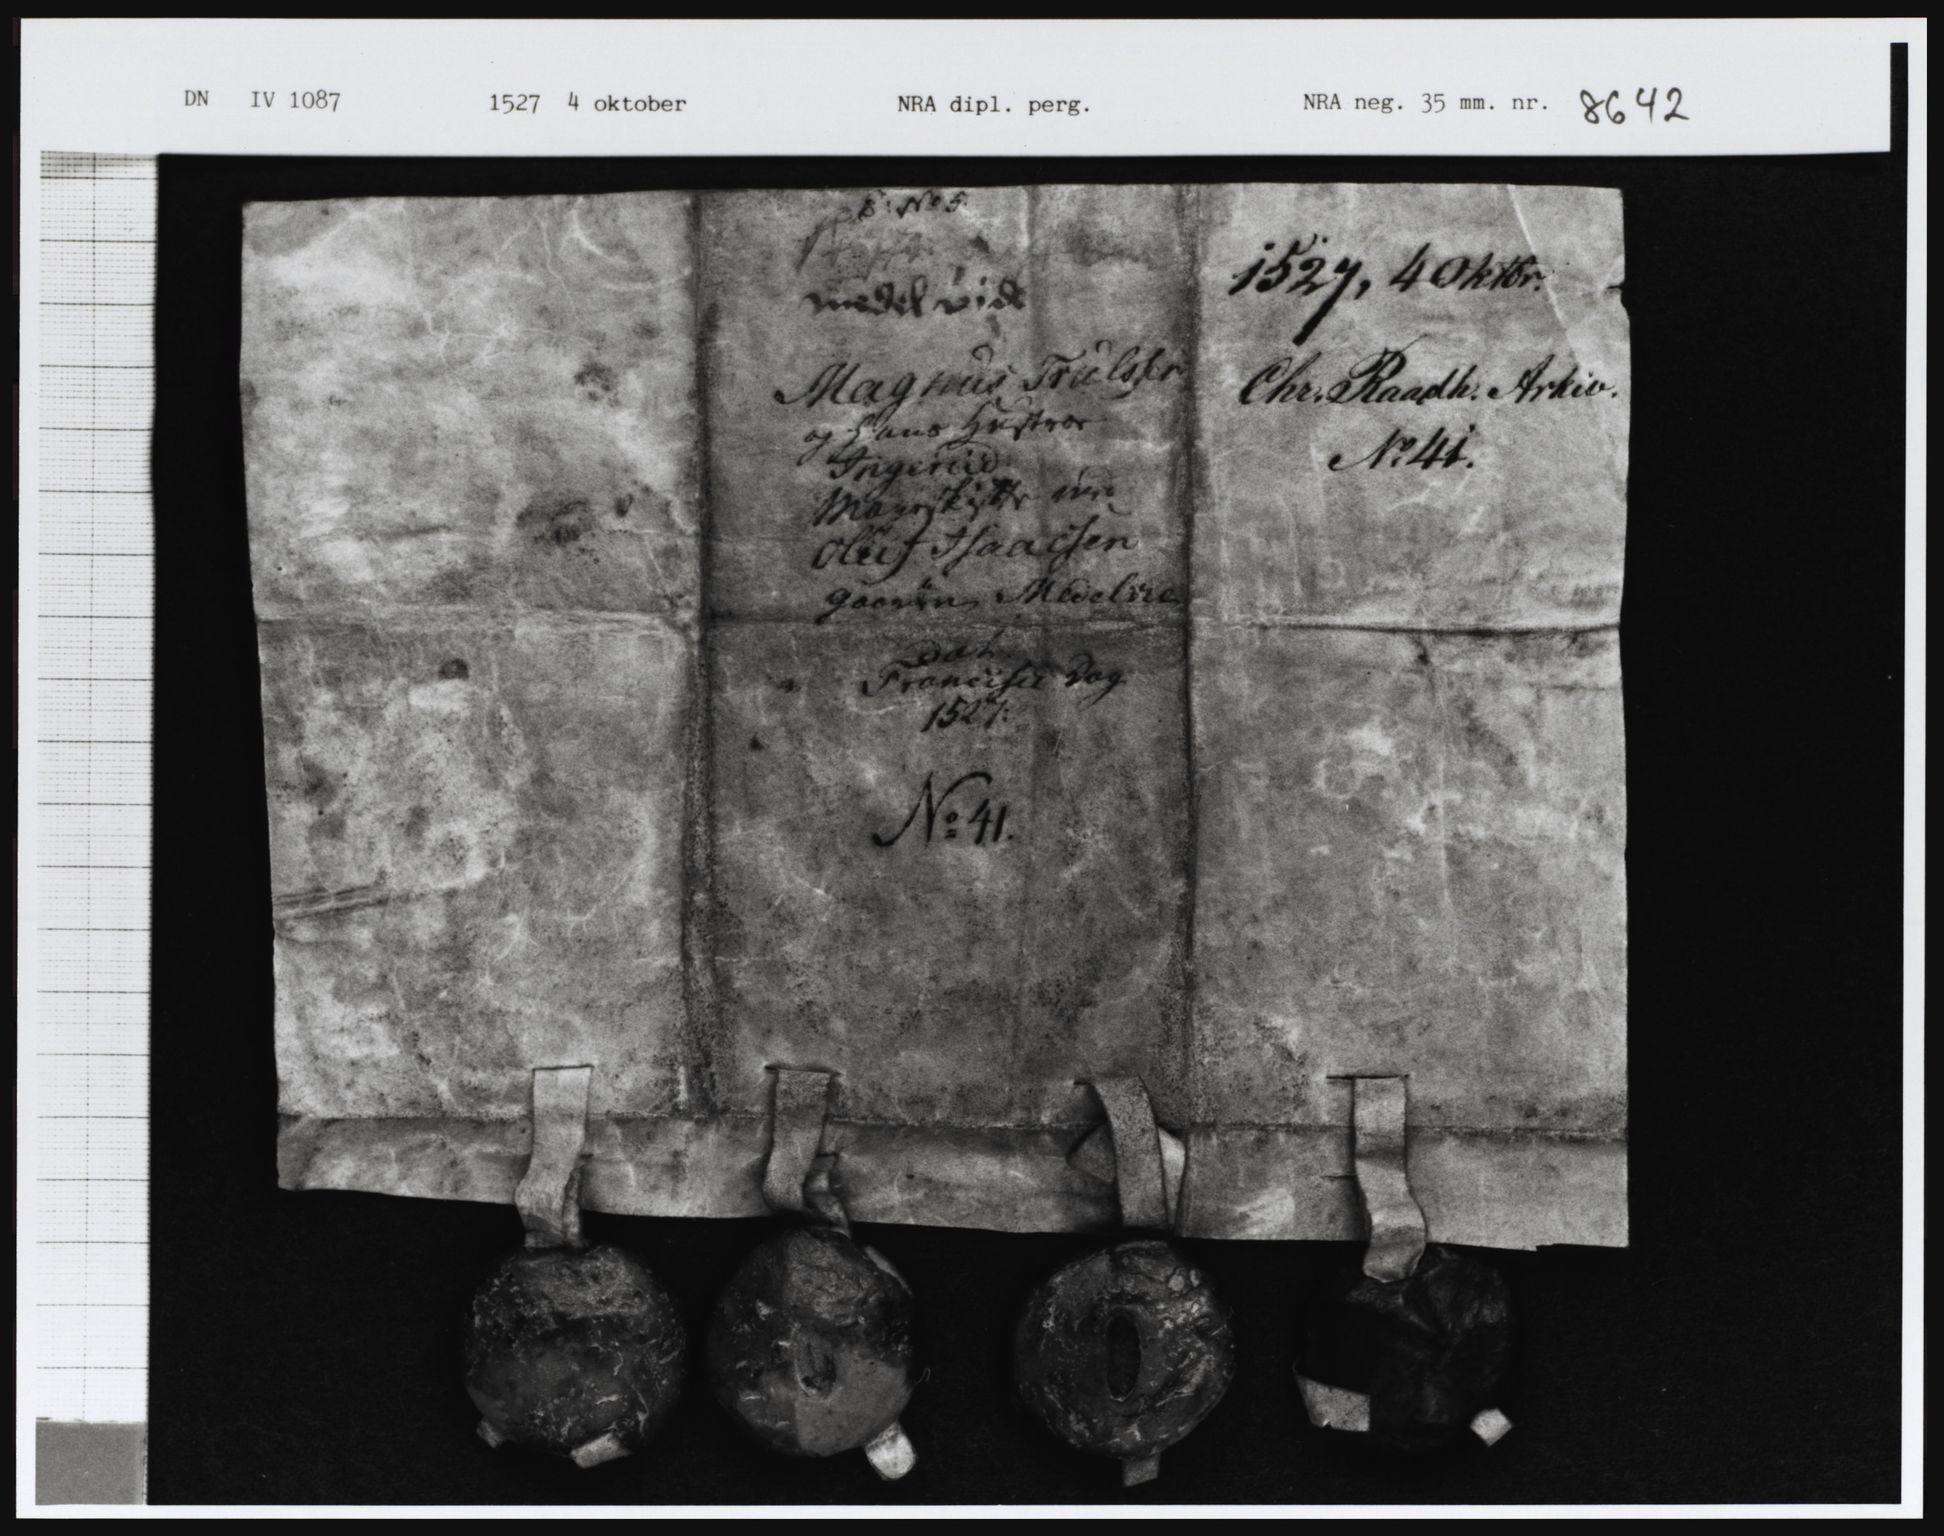 DN IV 1087 1527 4 oktober NRA dipl. perg. NRA neg. 35 mm. nr. 8642
No 5.
medel vid
Magnus Trulsfen
og Hans Hustroe
Ingerid
Oluf Isaacsen
Medelvie
dat.
Francisci Dag
1527.
No 41.
1527, 4 Oktbr.
Chr. Raadh. Arkiv.
No 41.